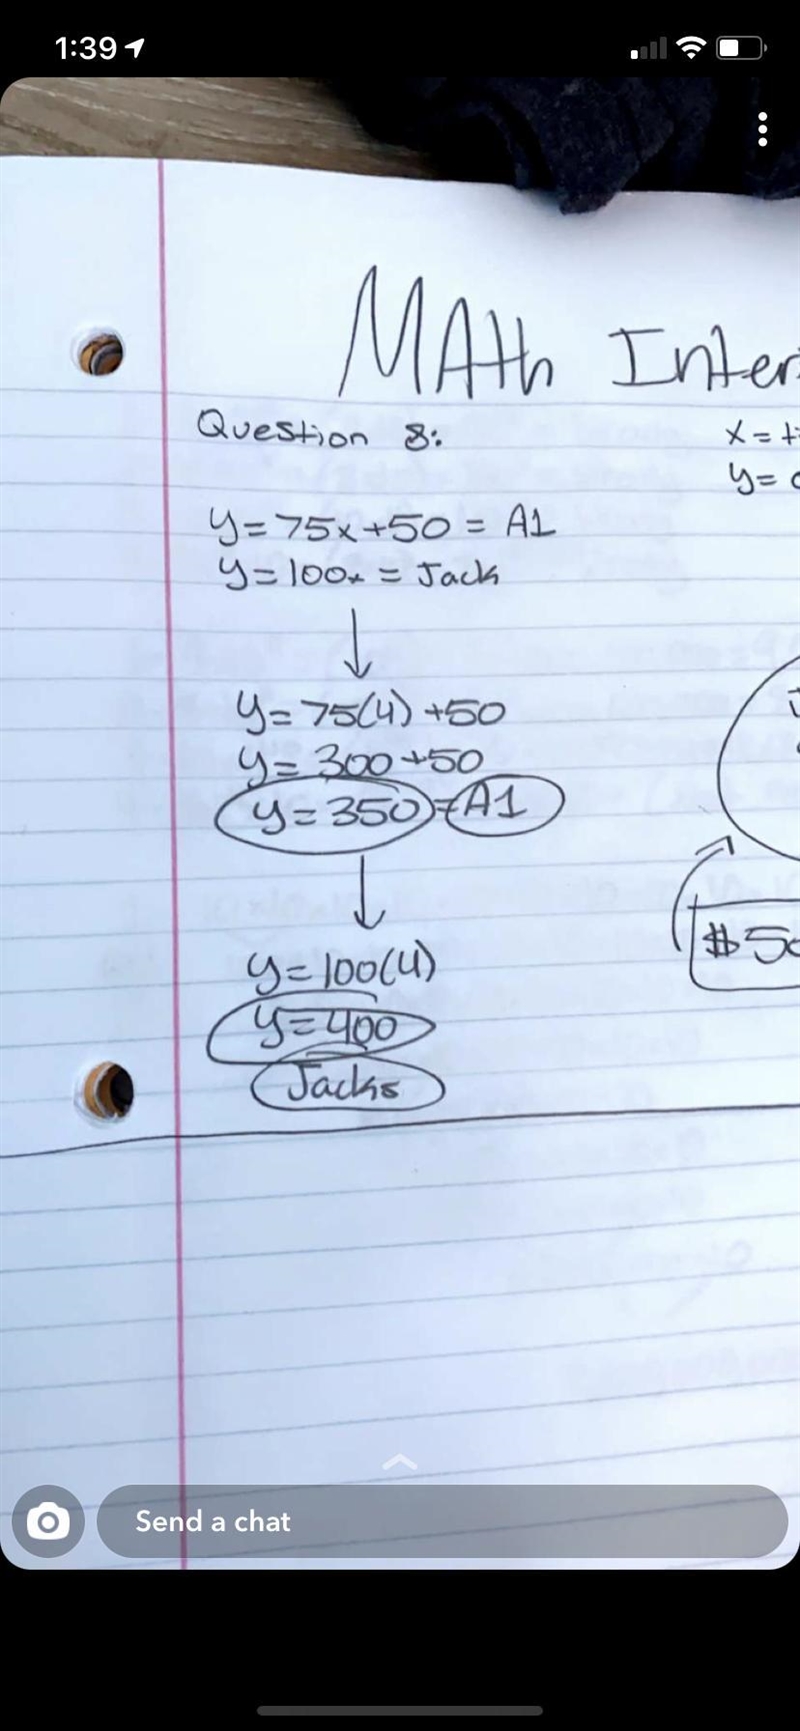 1:39
MAth Inter
Question 8:
x = t
y =
y = 75x + 50 = A1
y = 100x = Jack
y = 75(4) + 50
y = 300 + 50
y = 350 = A1
$50
y = 100(4)
y = 400
Jacks
Send a chat